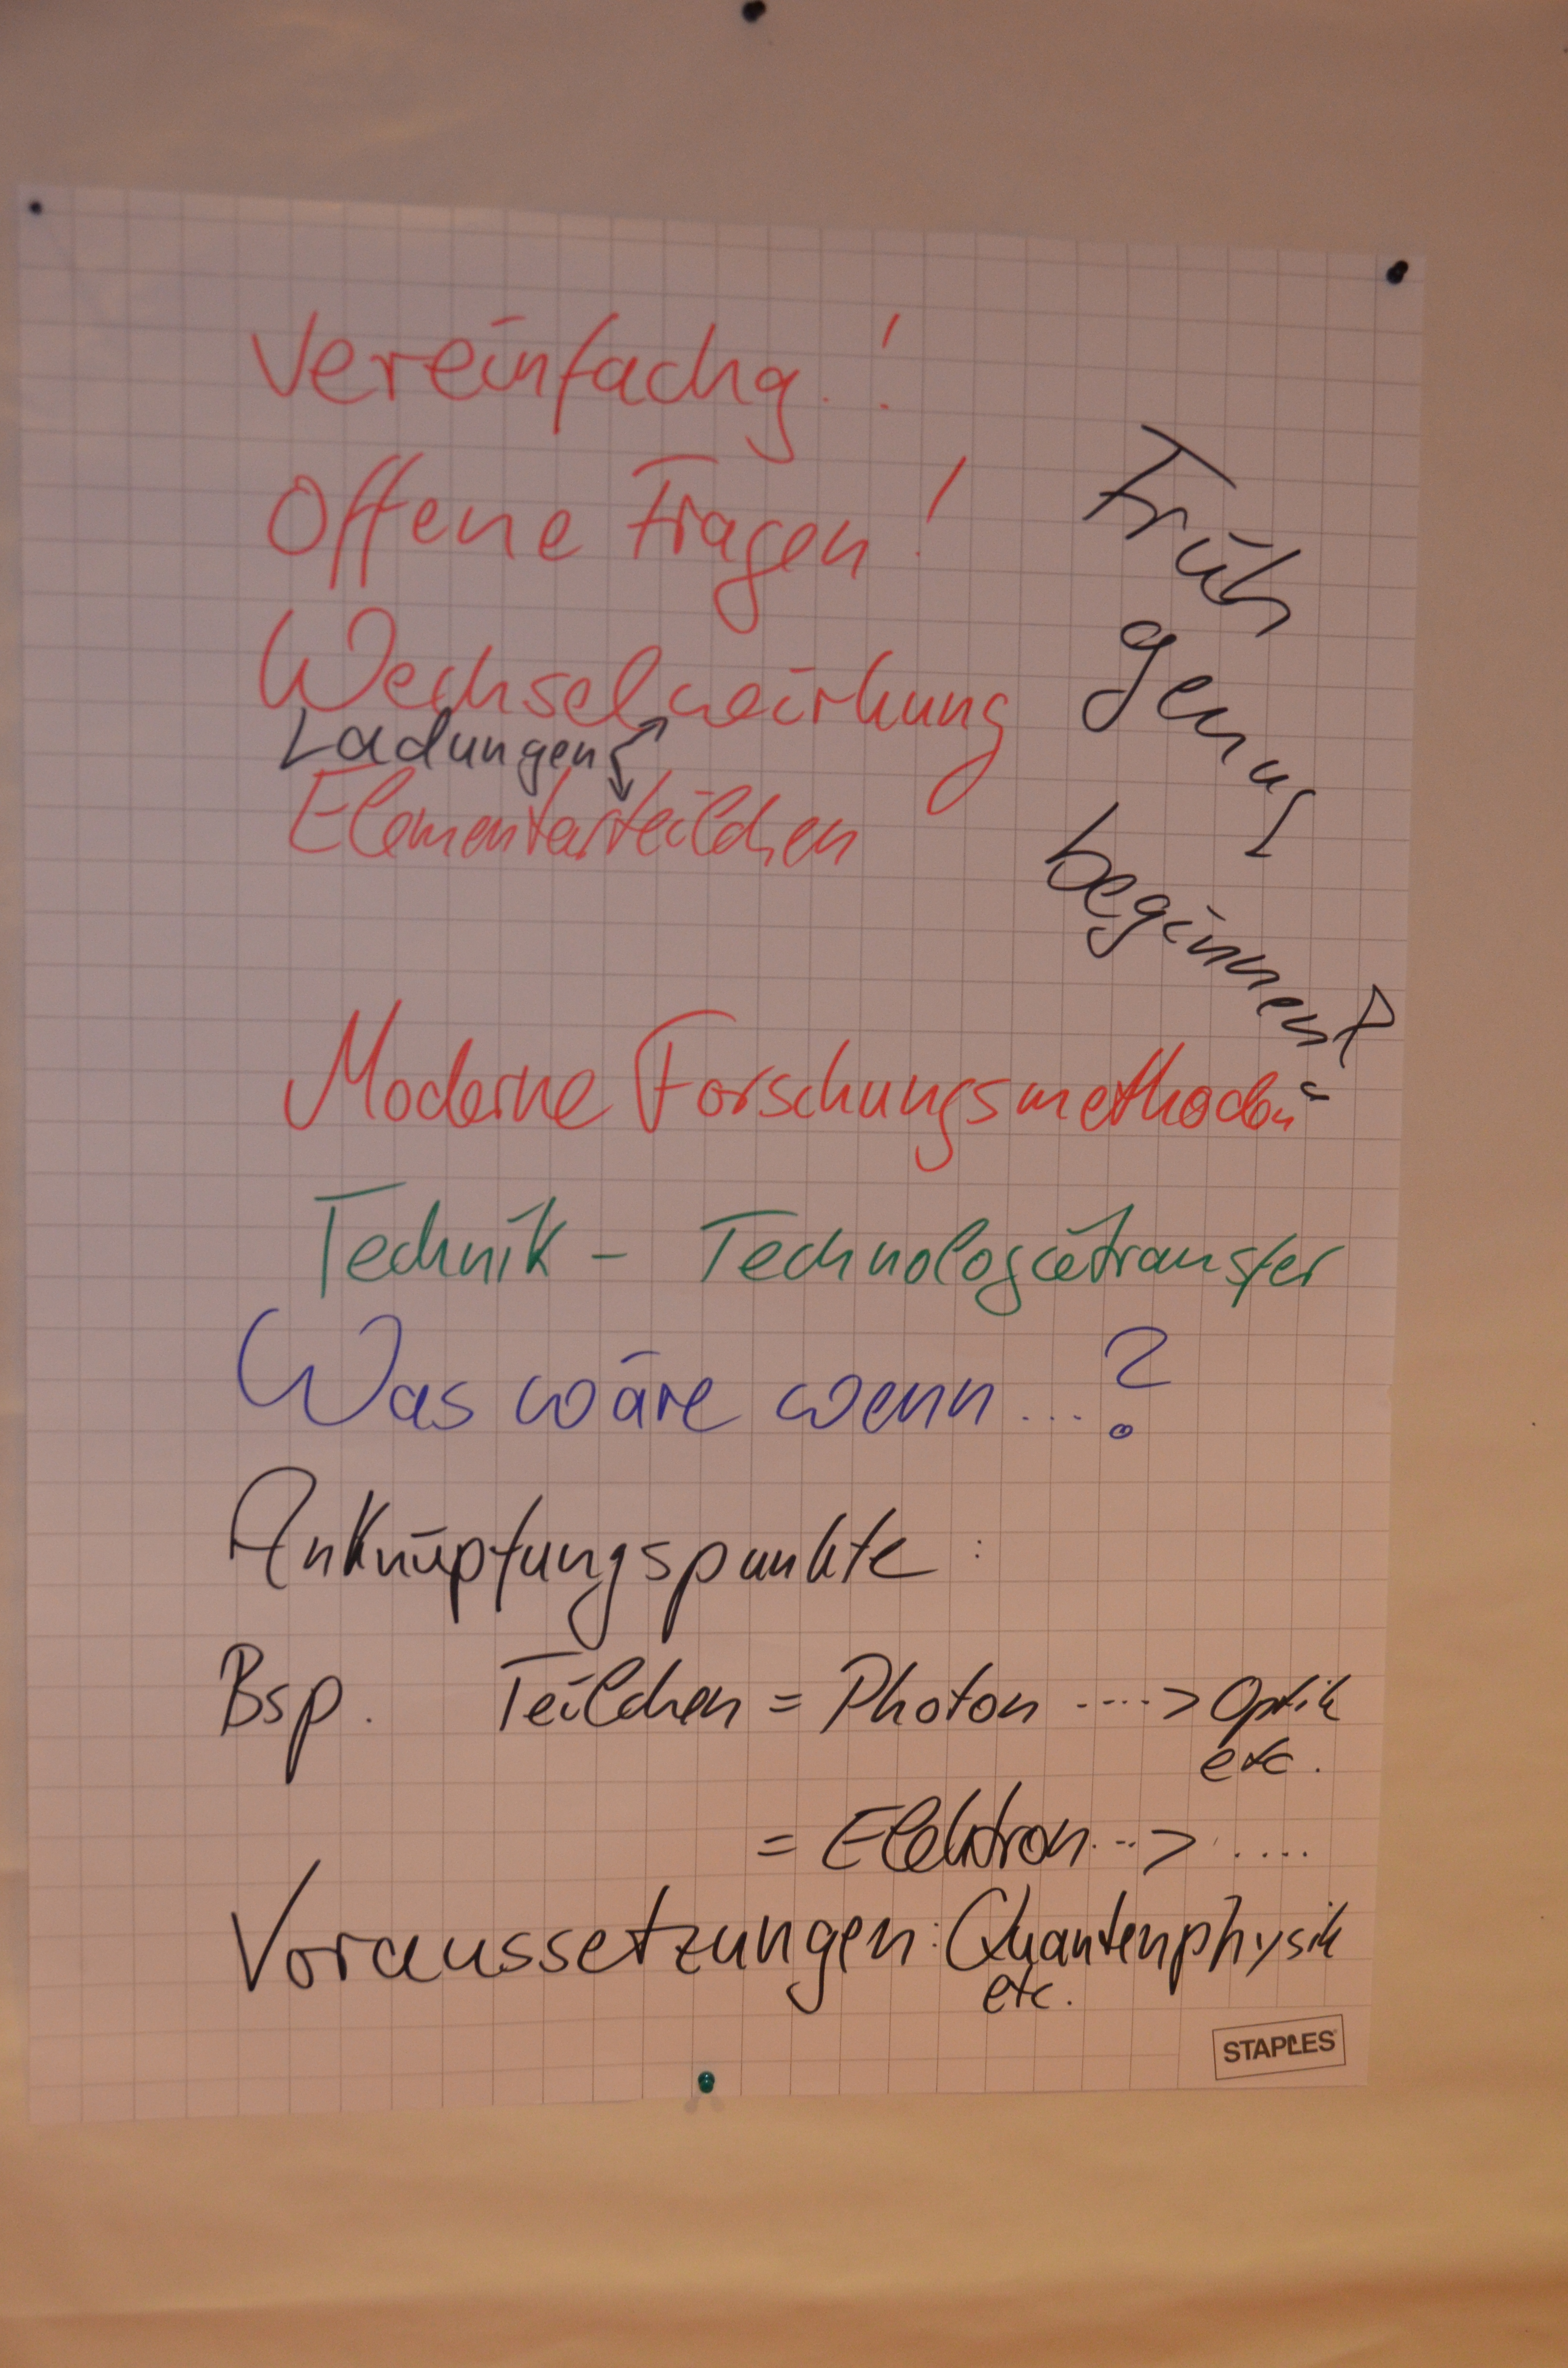 Vereinfachg.!
Offene Fragen!
Wechselwirkung
Ladungen
Elementarteilchen
Früh
genug
beginnen?
Moderne Forschungsmethoden
Technik - Technologietransfer
Was wäre wenn...?
Anknüpfungspunkte:
Bsp. Teilchen = Photon ----> Optik
etc.
= Elektron --> ....
Voraussetzungen: Quantenphysik
etc.
STAPLES